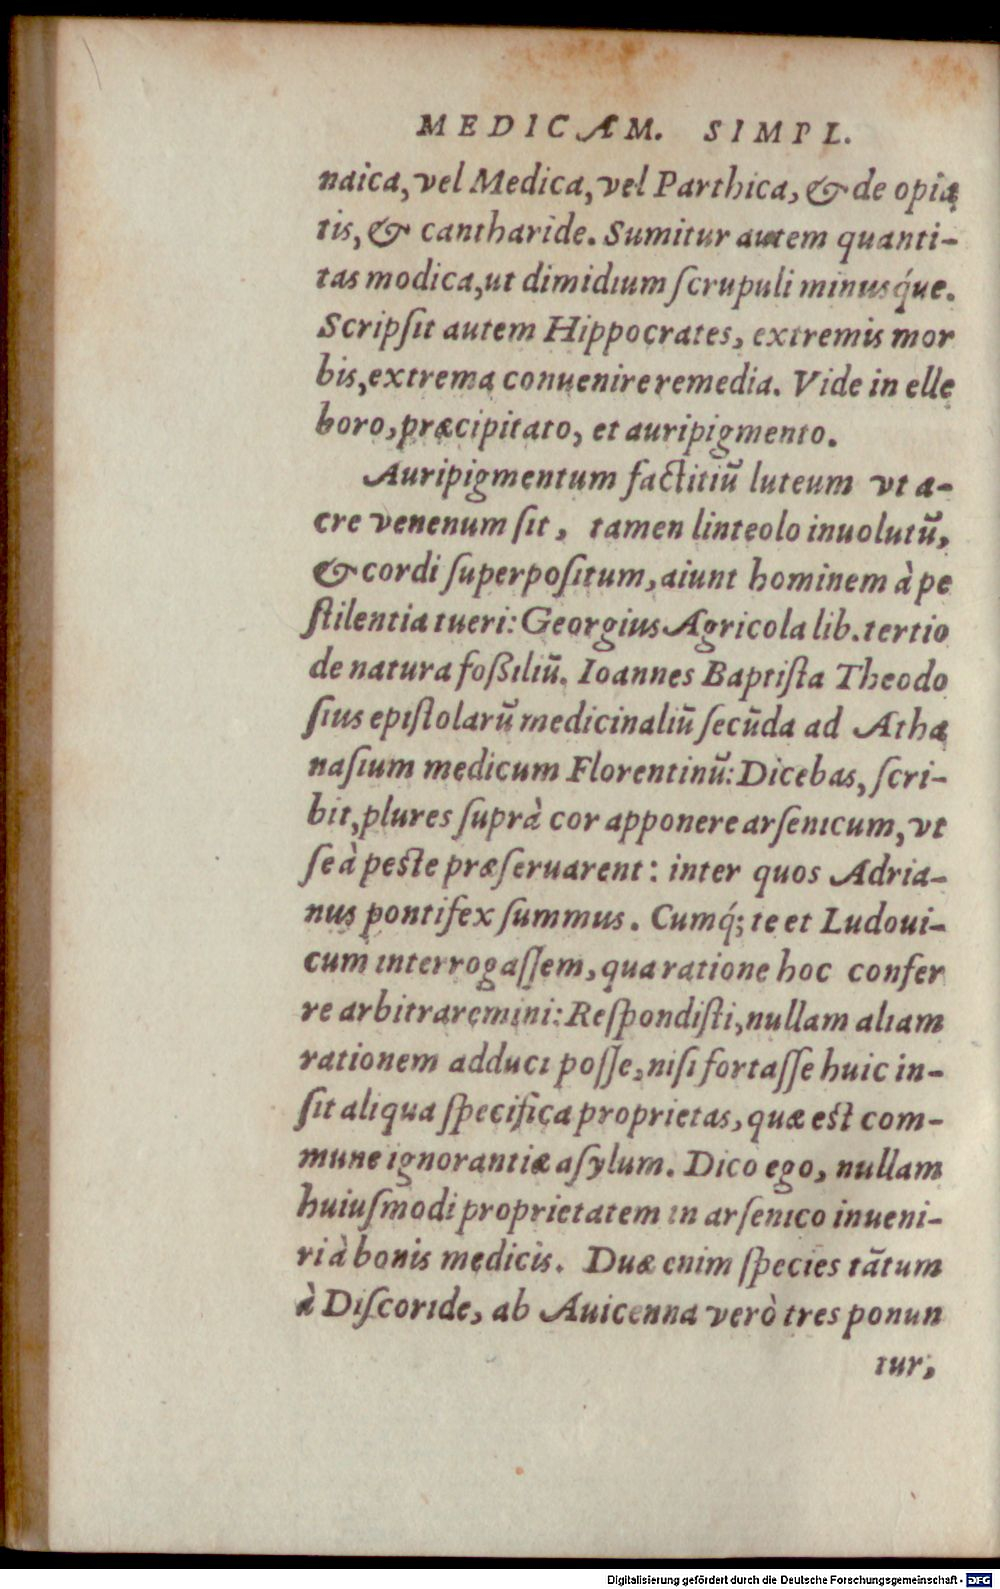 MEDICAM. SIMPL.
naica, vel Medica, vel Parthica, & de opia
tis, & cantharide. Sumitur autem quanti-
tas modica, ut dimidium ſcrupuli minusq́ue.
Scripſit autem Hippocrates, extremis mor
bis, extrema conuenire remedia. Vide in elle
boro, præcipitato, et auripigmento.
Auripigmentum factitiũ luteum vt a-
cre venenum ſit, tamen linteolo inuolutũ,
& cordi ſuperpoſitum, aiunt hominem à pe
ſtilentia tueri: Georgius Agricola lib. tertio
de natura foßiliũ. Ioannes Baptiſta Theodo
ſius epiſtolarũ medicinaliũ ſecũda ad Atha
naſium medicum Florentinũ: Dicebas, ſcri-
bit, plures ſuprà cor apponere arſenicum, vt
ſe à peſte præſeruarent: inter quos Adria-
nus pontifex ſummus. Cumq́; te et Ludoui-
cum interrogaſſem, qua ratione hoc confer
re arbitraremini: Reſpondiſti, nullam aliam
rationem adduci poſſe, niſi fortaſſe huic in-
ſit aliqua ſpecifica proprietas, quæ eſt com-
mune ignorantiæ aſylum. Dico ego, nullam
huiuſmodi proprietatem in arſenico inueni-
ri à bonis medicis. Duæ enim ſpecies tãtum
à Diſcoride, ab Auicenna verò tres ponun
tur,
Digitalisierung gefördert durch die Deutsche Forschungsgemeinschaft - DFG